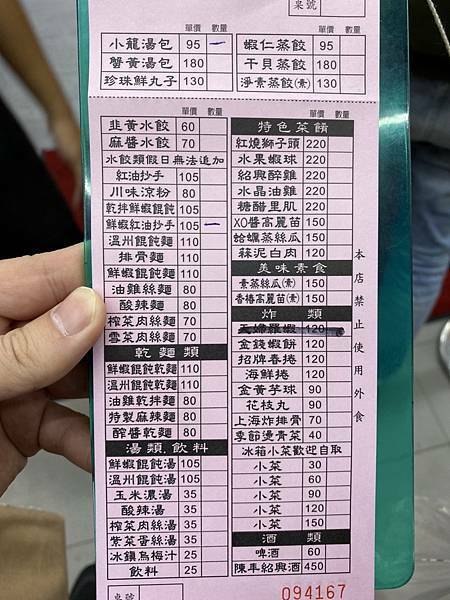 桌號
單價 數量 單價 數量
小龍湯包 95 一 蝦仁蒸餃 95
蟹黃湯包 180 干貝蒸餃 180
珍珠鮮丸子 130 淨素蒸餃(素) 130
單價 數量
韭黃水餃 60
麻醬水餃 70
水餃類假日無法追加
紅油抄手 105
川味涼粉 80
乾拌鮮蝦餛飩 105
鮮蝦紅油抄手 105 一
溫州餛飩麵 110
排骨麵 110
鮮蝦餛飩麵 110
油雞絲麵 80
酸辣麵 80
榨菜肉絲麵 70
雪菜肉絲麵 70
乾麵類
鮮蝦餛飩乾麵 110
溫州餛飩乾麵 110
油雞乾拌麵 80
特製麻辣麵 80
醡醬乾麵 80
湯類.飲料
鮮蝦餛飩湯 105
溫州餛飩湯 105
玉米濃湯 35
酸辣湯 35
榨菜肉絲湯 35
紫菜蛋絲湯 35
冰鎮烏梅汁 25
飲料 25
單價 數量
特色菜餚
紅燒獅子頭 220
水果蝦球 220
紹興醉雞 220
水晶油雞 220
糖醋里肌 220
XO醬高麗苗 150
蛤蠣蒸絲瓜 150
蒜泥白肉 120
美味素食
素蒸絲瓜(素) 150
香椿高麗苗(素) 150
炸類
120
金錢蝦餅 120
招牌春捲 120
海鮮捲 120
金黃芋球 90
花枝丸 90
上海炸排骨 70
季節燙青菜 40
冰箱小菜歡迎自取
小菜 30
小菜 60
小菜 90
小菜 120
小菜 150
酒類
啤酒 60
陳年紹興酒 450
本店禁止使用外食
桌號
094167